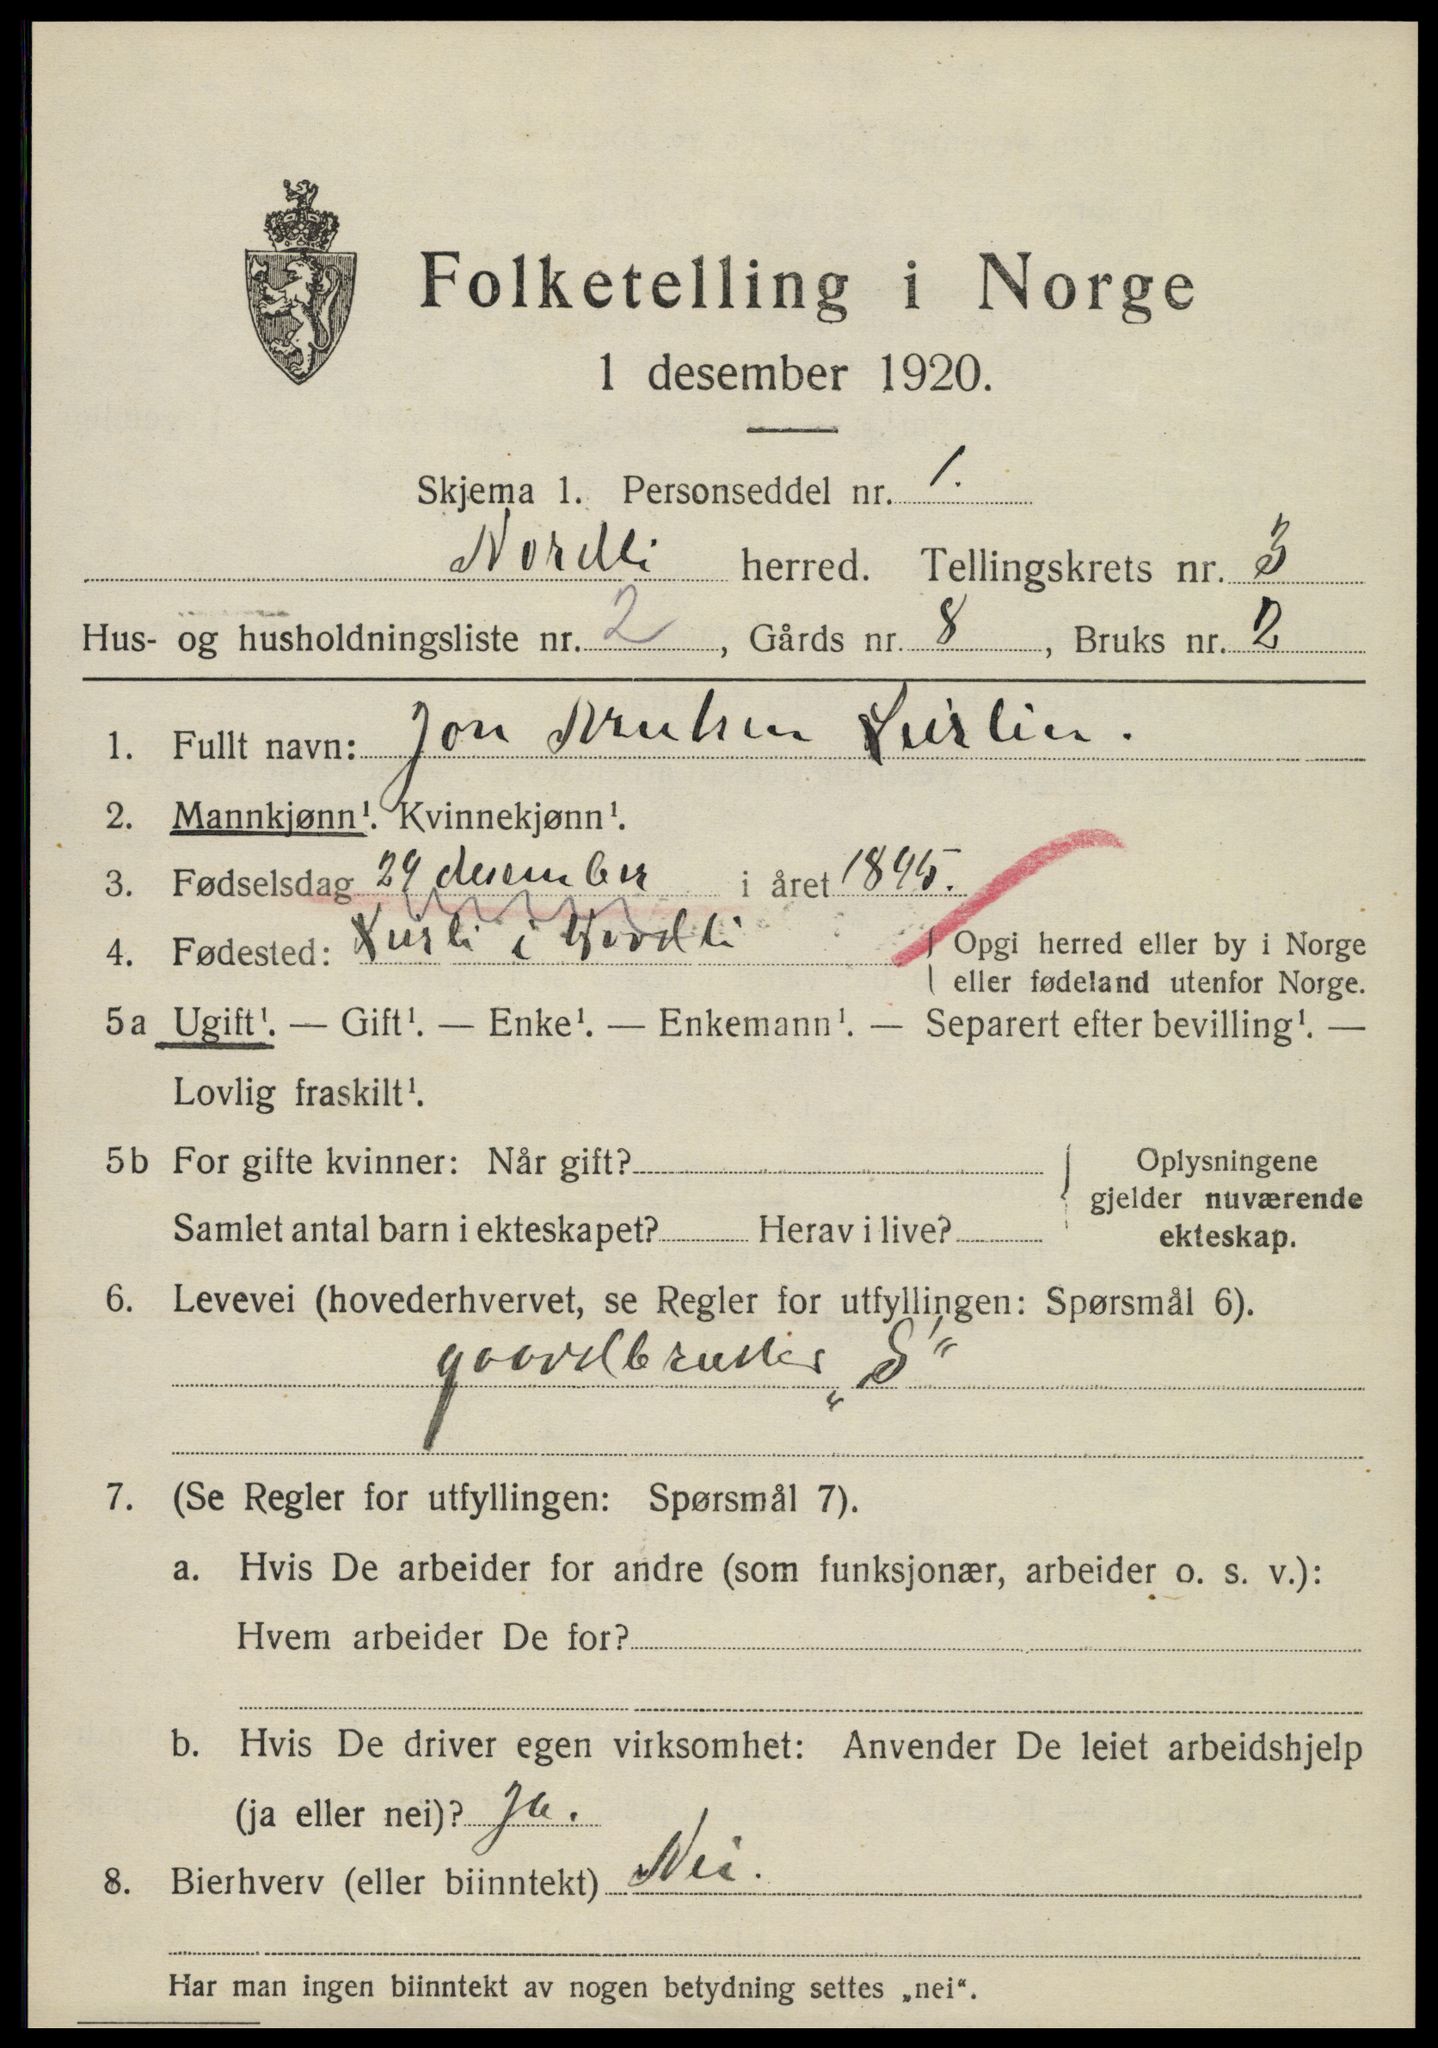 Folketelling i Norge
1 desember 1920.
Skjema 1. Personseddel nr. 1.
Nordli herred. Tellingskrets nr. 3
Hus- og husholdningsliste nr. 2, Gårds nr. 8, Bruks nr. 2
1. Fullt navn: Jon
2. Mannkjønn¹. Kvinnekjønn¹.
3. Fødselsdag 29 desember i året 1895.
4. Fødested: i Nordli
{ Opgi herred eller by i Norge
eller fødeland utenfor Norge.
5a Ugift¹. — Gift¹. — Enke¹. — Enkemann¹. — Separert efter bevilling¹. —
Lovlig fraskilt¹.
5b For gifte kvinner: Når gift?
Samlet antal barn i ekteskapet? Herav i live?
{ Oplysningene
gjelder nuværende
ekteskap.
6. Levevei (hovederhvervet, se Regler for utfyllingen: Spørsmål 6).
gaardbruker „S“
7. (Se Regler for utfyllingen: Spørsmål 7).
a. Hvis De arbeider for andre (som funksjonær, arbeider o. s. v.):
Hvem arbeider De for?
b. Hvis De driver egen virksomhet: Anvender De leiet arbeidshjelp
(ja eller nei)? Ja.
8. Bierhverv (eller biinntekt) Nei.
Har man ingen biinntekt av nogen betydning settes „nei“.